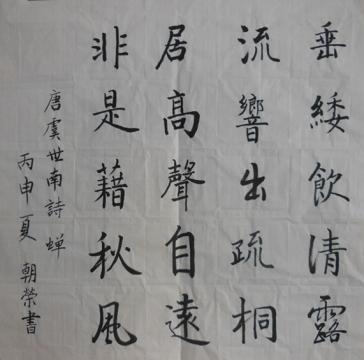 垂緌飲清露
流響出疏桐
居高聲自遠
非是藉秋風
唐虞世南詩蝉
丙申夏 朝榮書